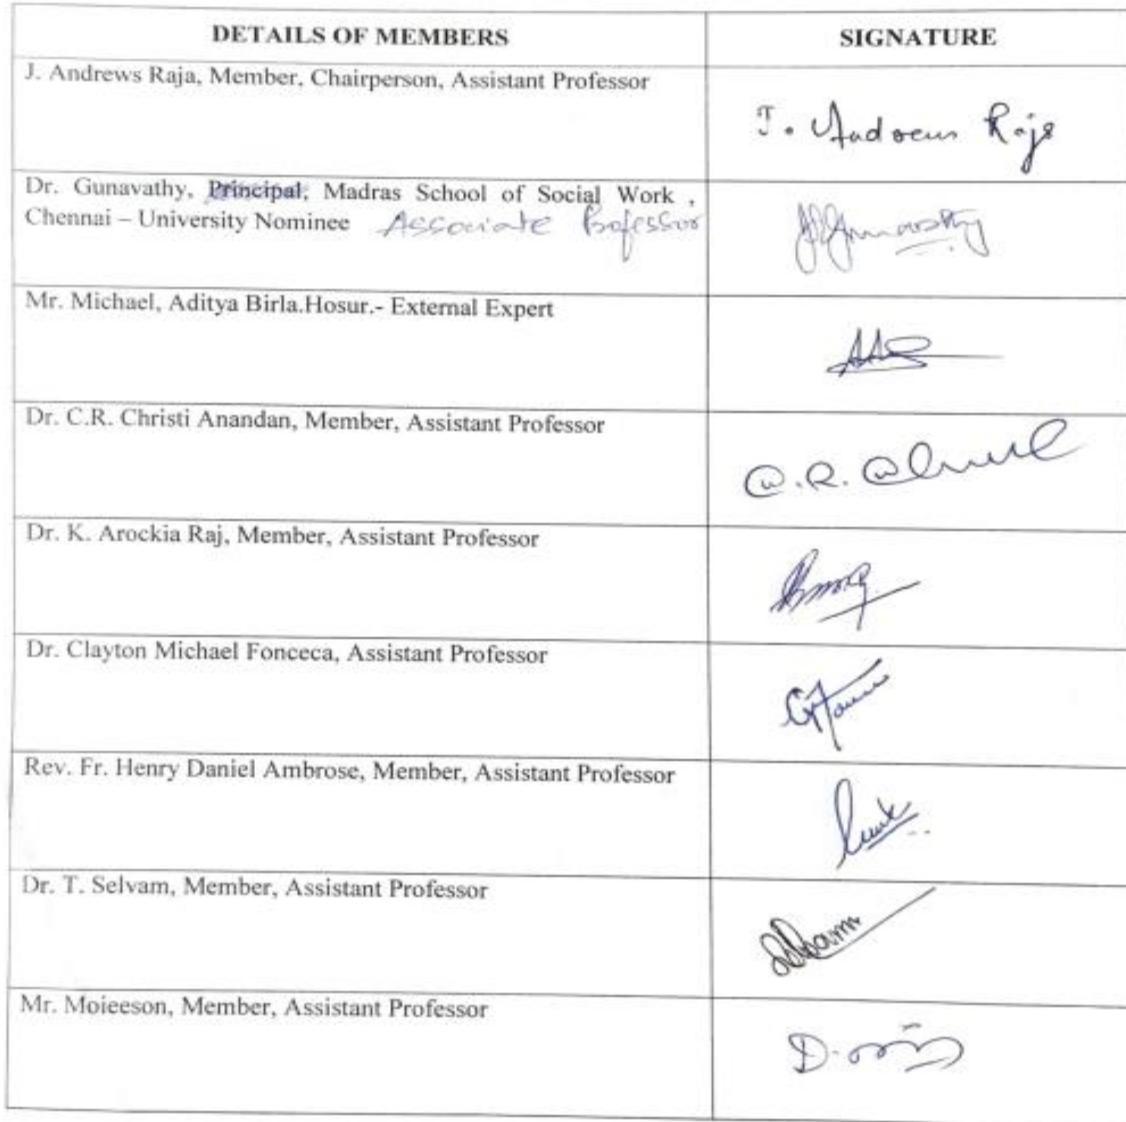 DETAILS OF MEMBERS
SIGNATURE
J. Andrews Raja, Member, Chairperson, Assistant Professor
J. Andrews Raja
Dr. Gunavathy, Principal, Madras School of Social Work ,
Chennai – University Nominee Associate Professor
Mr. Michael, Aditya Birla.Hosur.- External Expert
Dr. C.R. Christi Anandan, Member, Assistant Professor
Dr. K. Arockia Raj, Member, Assistant Professor
Dr. Clayton Michael Fonceca, Assistant Professor
Rev. Fr. Henry Daniel Ambrose, Member, Assistant Professor
Dr. T. Selvam, Member, Assistant Professor
Mr. Moieeson, Member, Assistant Professor